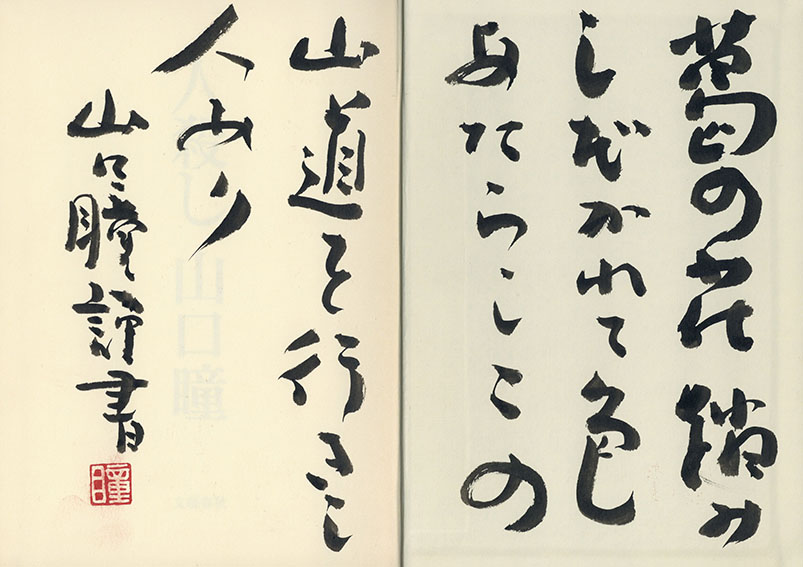 葛の花 踏み
しだかれて色
あたらしこの
山道を行きし
人あり
山口瞳謹書
瞳
人殺し 山口瞳